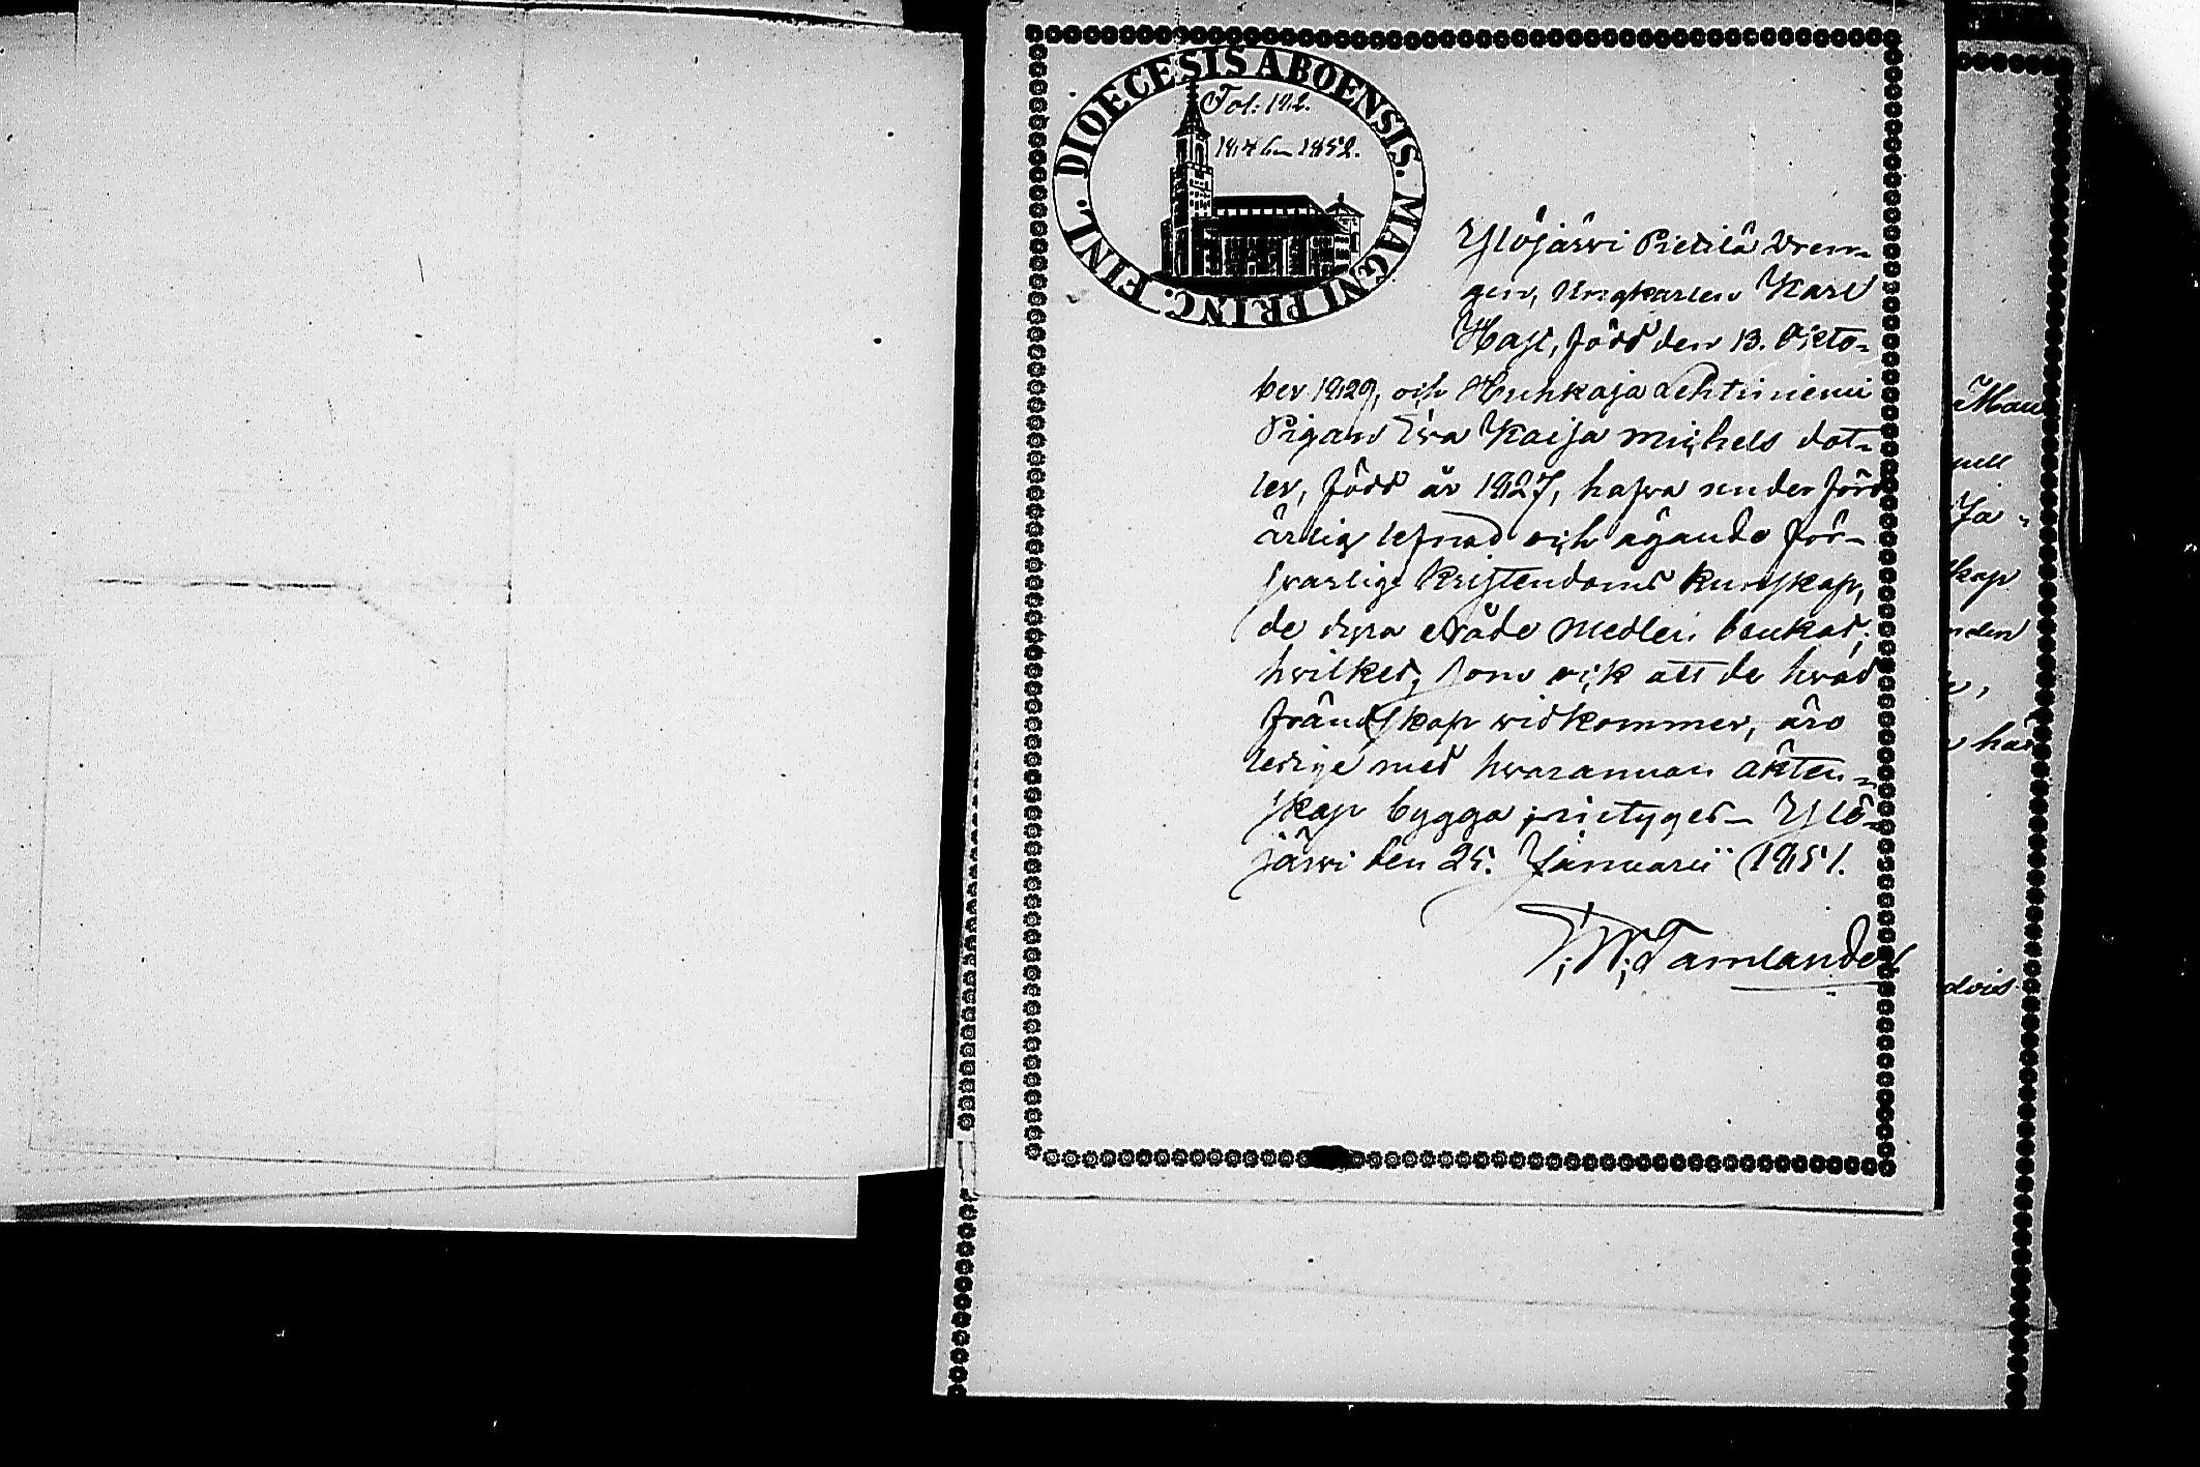 DIOECESIS ABOENSIS. MAGNI PRINC. FINL.
Fol: 192.
1852.
Ylöjärvi Pietilä Dren-
gen, Ungkarlen Karl
Hast, född den 13. Octo-
ber 1829, och Huhkaja Lehtiniemi
Pigan Eva Kaisa Michels dot-
ter, född år 1827, hafva under förd
ärlig lefnad och ägande för-
svarlig Kristendoms kunskap,
de dyra Nåde Medlen bevkat;
hvilket, som ock att de hvad
frändskap vidkommer, äro
ledige med hvarannan äkten-
skap bygga, intyges. Ylö-
järvi den 25. Januarii 1851.
F. W. Tamlander
Man
nell
Ja-
skap
nden
har